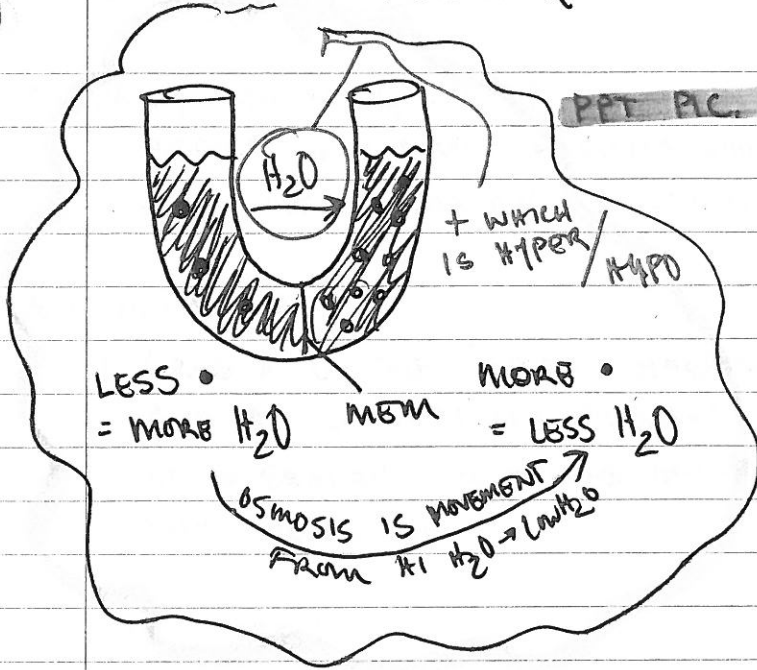 PPT PIC.
H₂O
+ WHICH
IS HYPER/HYPO
LESS •
= MORE H₂O
MEM
MORE •
= LESS H₂O
OSMOSIS IS MOVEMENT
FROM HI H₂O → LOW H₂O